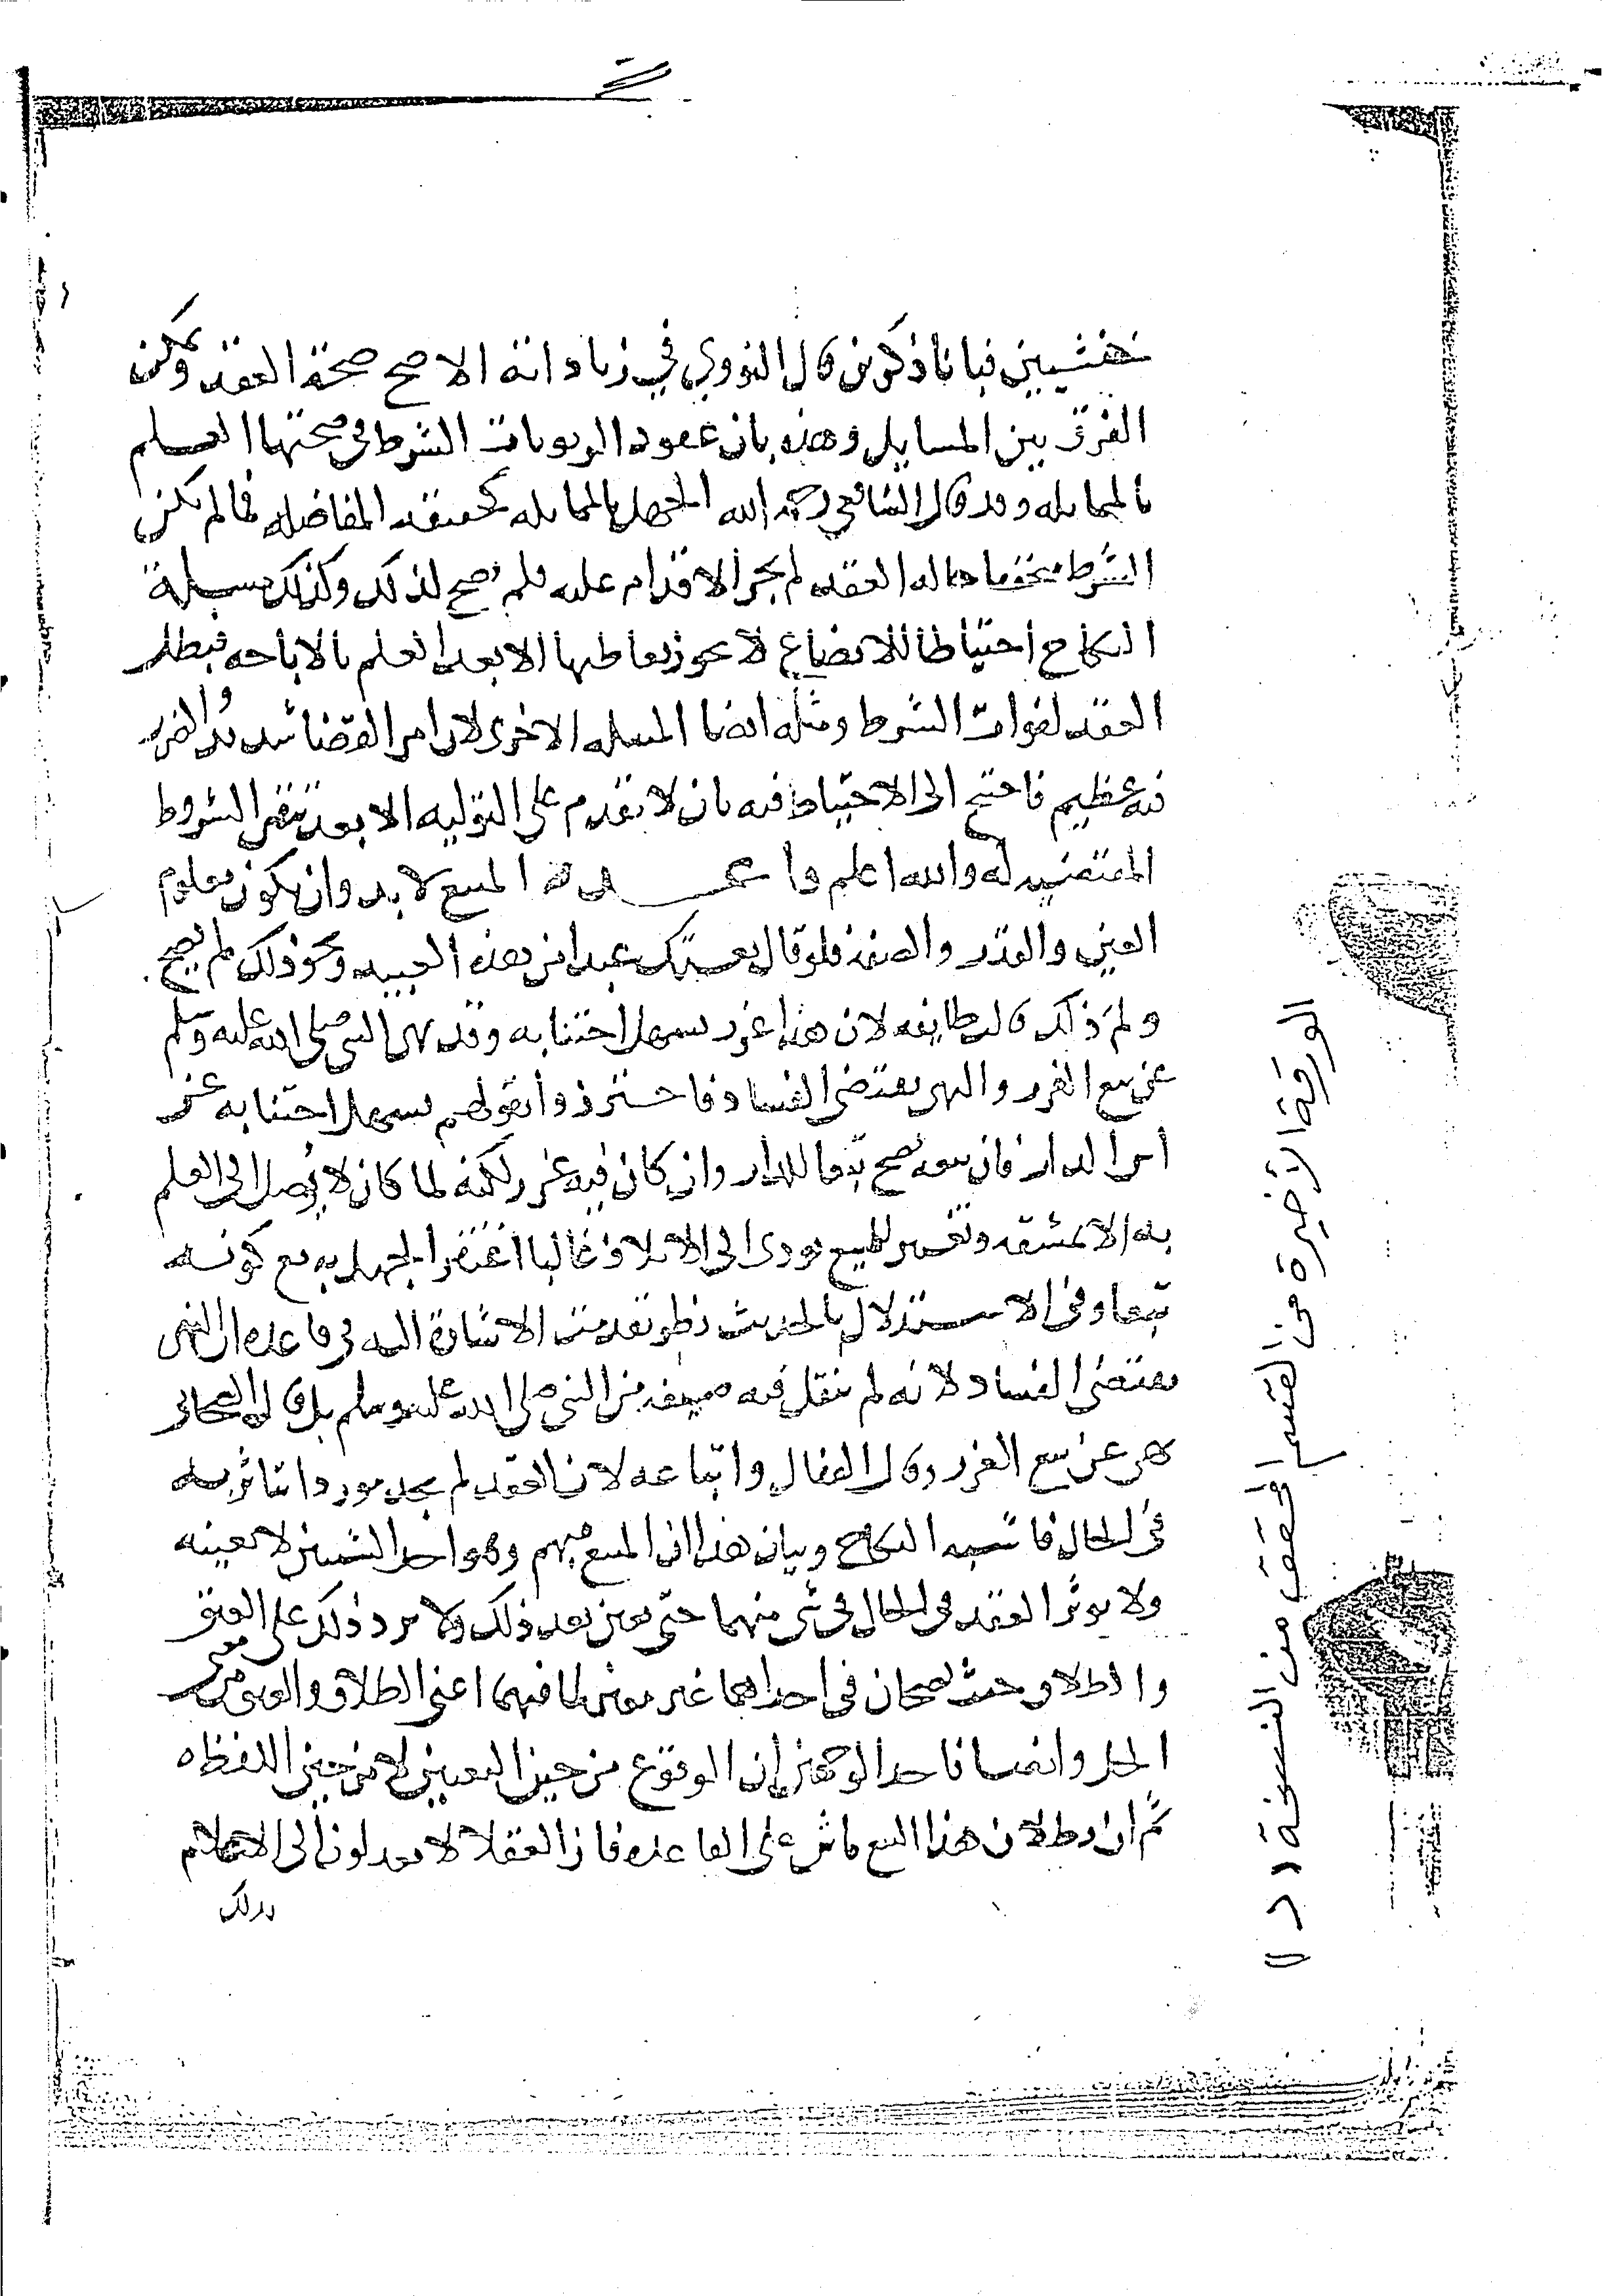 خنثيين فبانا ذكرين قال النووي في زياداته الاصح صحة العقد ويمكن
الفرق بين المسايل وهذه بان عقود الربويات الشرط في صحتها العلم
بالمماثله وقد قال الشافعي رحمه الله الجهل بالمماثله كحقيقة المفاضله فما لم يكن
الشرط محققا حاله العقد لم يجز الاقدام عليه فلم يصح لذلك وكذلك مسيلة
النكاح احتياطا للابضاع لا يجوز تعاطيها الا بعد العلم بالاباحه فبطل
العقد لفوات الشرط ومثله ايضا المسله الاخرى لان امر القضا شديد والضرر
فيه عظيم فاحتيج الى الاحتياط فيه بان لا يقدم على التوليه الا بعد الشروط
المقتضيه له والله اعلم واعـــــلم ان المبيع لا بد وان يكون معلوم
العين والقدر والصفه فلو قال بعتك عبدا من هذه العبيد ونحو ذلك لم يصح
ولم ذلك قال طايفه لان هذا غرر يسهل اجتنابه وقد نهى النبي صلى الله عليه وسلم
عن بيع الغرر والنهى يقتضى الفساد فاحترزوا بقولهم يسهل اجتنابه عن
اس الدار فان بيعه يصح تبعا للدار وان كان فيه غرر لكنه لما كان لا يوصل الى العلم
به الا بمشقه وتغيير للمبيع يودى الى الاتلاف غالبا اغتفر الجهل به مع كونه
تبعا وفى الاستدلال بالحديث نظر تقدمت الاشارة اليه فى قاعدة ان النهى
يقتضى الفساد ولانه لم ينقل فيه صيغه من النبى صلى الله عليه وسلم بل قال الصحابى
نهى عن بيع الغرر وقال القفال واتباعه لان العقد لم يجد موردا يتاثر به
فى الحال فاشبه النكاح وبيان هذا ان المبيع مبهم وهو احد الشيئين لا بعينه
ولا يوثر العقد فى الحال فى شى منهما حتى يعين بعد ذلك ولا يرد ذلك على العتق
والطلاق حيث يصحان فى احداهما غير معين لما فيهما اعنى الطلاق والعتق من
الحل وايضا فاحد الوجهين ان الوقوع من حين التعيين لا من حين اللفظ
ثم ان بطلان هذا البيع ماش على القاعده فان العقلا لا يعدلون الى الابهام
بذلك
الورقة الأخيرة من القسم المحقق من النسخة (د)